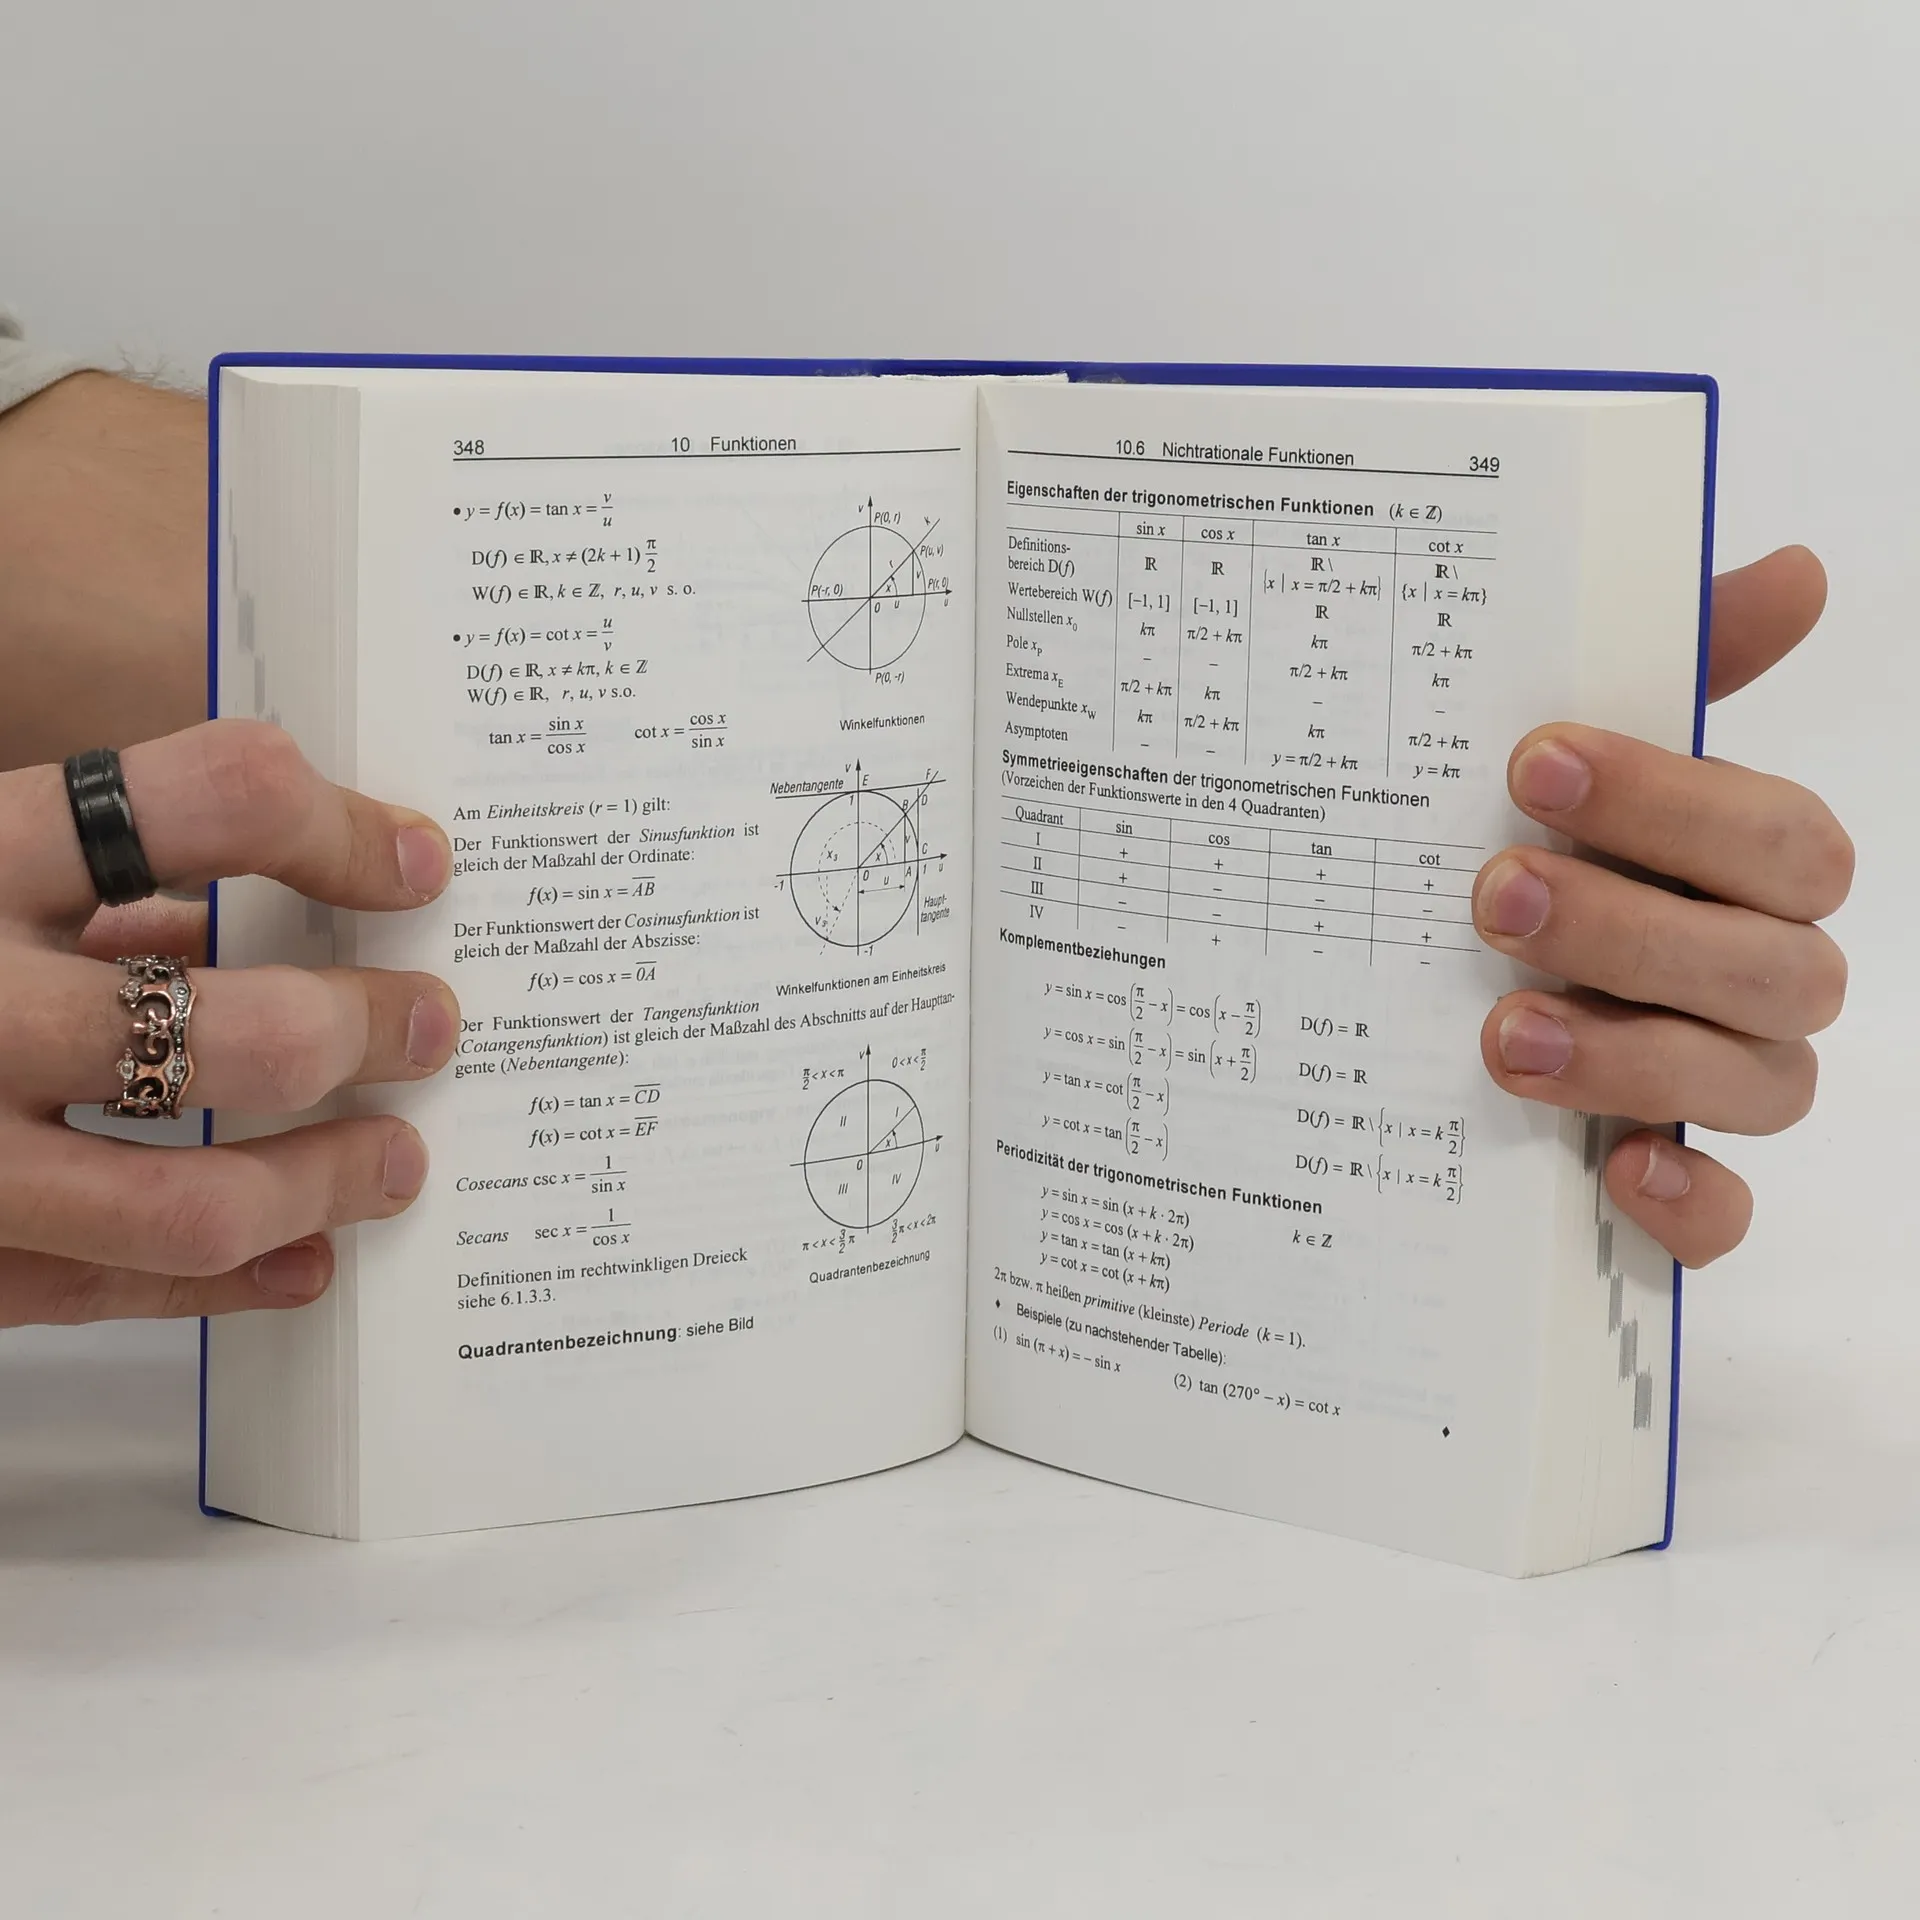 348 10 Funktionen
• y = f(x) = tan x = v/u
D(f) ∈ ℝ, x ≠ (2k + 1) π/2
W(f) ∈ ℝ, k ∈ ℤ, r, u, v s. o.
• y = f(x) = cot x = u/v
D(f) ∈ ℝ, x ≠ kπ, k ∈ ℤ
W(f) ∈ ℝ, r, u, v s.o.
tan x = sin x/cos x cot x = cos x/sin x
v
P(0, r)
P(u, v)
r
v
P(-r, 0)
x
P(r, 0)
0 u u
P(0, -r)
Winkelfunktionen
Am Einheitskreis (r = 1) gilt:
Der Funktionswert der Sinusfunktion ist
gleich der Maßzahl der Ordinate:
f(x) = sin x = AB
Der Funktionswert der Cosinusfunktion ist
gleich der Maßzahl der Abszisse:
f(x) = cos x = 0A
v E F
Nebentangente
1 B D
x₃ x v C
-1 0 u A 1 u
Haupt-
tangente
-1
Winkelfunktionen am Einheitskreis
Der Funktionswert der Tangensfunktion
(Cotangensfunktion) ist gleich der Maßzahl des Abschnitts auf der Haupttan-
gente (Nebentangente):
f(x) = tan x = CD
f(x) = cot x = EF
Cosecans csc x = 1/sin x
Secans sec x = 1/cos x
Definitionen im rechtwinkligen Dreieck
siehe 6.1.3.3.
Quadrantenbezeichnung: siehe Bild
π/2 < x < π v 0 < x < π/2
II I
x
0 u
III IV
π < x < 3/2 π 3/2 π < x < 2π
Quadrantenbezeichnung
10.6 Nichtrationale Funktionen 349
Eigenschaften der trigonometrischen Funktionen (k ∈ ℤ)
sin x cos x tan x cot x
Definitions-
bereich D(f) ℝ ℝ ℝ \ {x | x = π/2 + kπ} ℝ \ {x | x = kπ}
Wertebereich W(f) [−1, 1] [−1, 1] ℝ ℝ
Nullstellen x₀ kπ π/2 + kπ kπ π/2 + kπ
Pole xP – – π/2 + kπ kπ
Extrema xE π/2 + kπ kπ – –
Wendepunkte xW kπ π/2 + kπ kπ π/2 + kπ
Asymptoten – – y = π/2 + kπ y = kπ
Symmetrieeigenschaften der trigonometrischen Funktionen
(Vorzeichen der Funktionswerte in den 4 Quadranten)
Quadrant sin cos tan cot
I + + + +
II + – – –
III – – + +
IV – + – –
Komplementbeziehungen
y = sin x = cos (π/2 − x) = cos (x − π/2) D(f) = ℝ
y = cos x = sin (π/2 − x) = sin (x + π/2) D(f) = ℝ
y = tan x = cot (π/2 − x) D(f) = ℝ \ {x | x = k π/2}
y = cot x = tan (π/2 − x) D(f) = ℝ \ {x | x = k π/2}
Periodizität der trigonometrischen Funktionen
y = sin x = sin (x + k · 2π)
y = cos x = cos (x + k · 2π) k ∈ ℤ
y = tan x = tan (x + kπ)
y = cot x = cot (x + kπ)
2π bzw. π heißen primitive (kleinste) Periode (k = 1).
♦ Beispiele (zu nachstehender Tabelle):
(1) sin (π + x) = − sin x (2) tan (270° − x) = cot x
♦